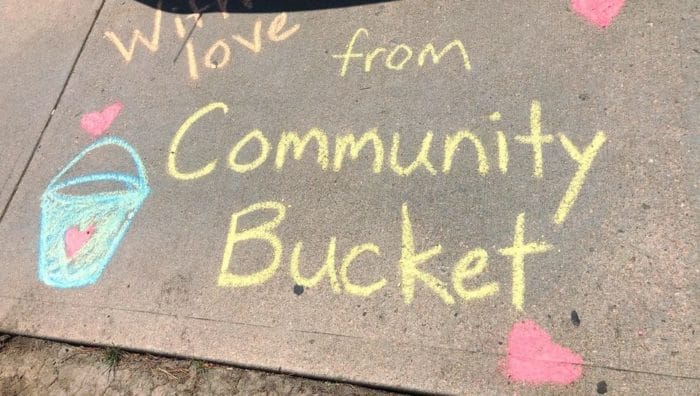 With
love from
Community
Bucket